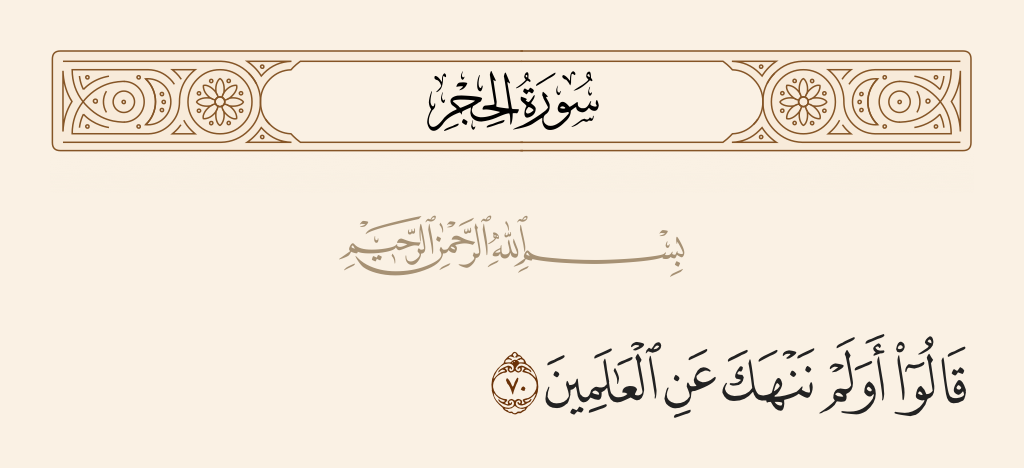 سُورَةُ الحِجْرِ
بِسْمِ ٱللَّهِ ٱلرَّحْمَٰنِ ٱلرَّحِيمِ
قَالُوٓا۟ أَوَلَمْ نَنْهَكَ عَنِ ٱلْعَٰلَمِينَ ٧٠